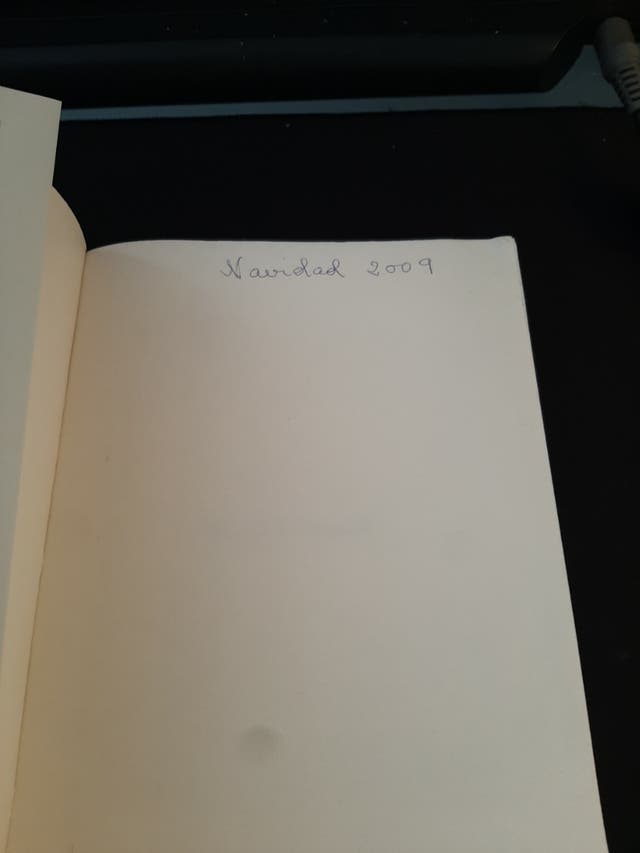 Navidad 2009